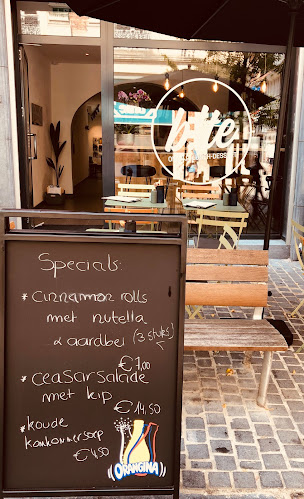 bite
Specials:
* cinnamon rolls
met nutella
& aardbei (3 stuks)
€7,00
* ceasarsalade
met kip
€14,50
* koude
komkommersoep
€4,50
ORANGINA